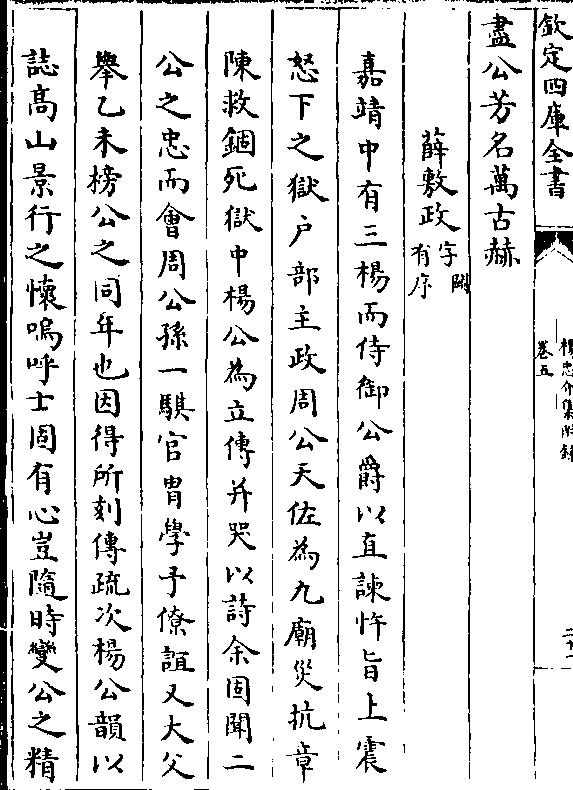 欽定四庫全書
楊忠介集附錄
卷五
盡公芳名萬古赫
薛敷政字闕有序
嘉靖中有三楊而侍御公爵以直諫忤旨上震
怒下之獄户部主政周公天佐為九廟災抗章
陳救錮死獄中楊公為立傳并哭以詩余固聞二
公之忠而會周公孫一騏官胄學予僚誼又大父
舉乙未榜公之同年也因得所刻傳疏次楊公韻以
誌髙山景行之懷嗚呼士固有心豈隨時變公之精